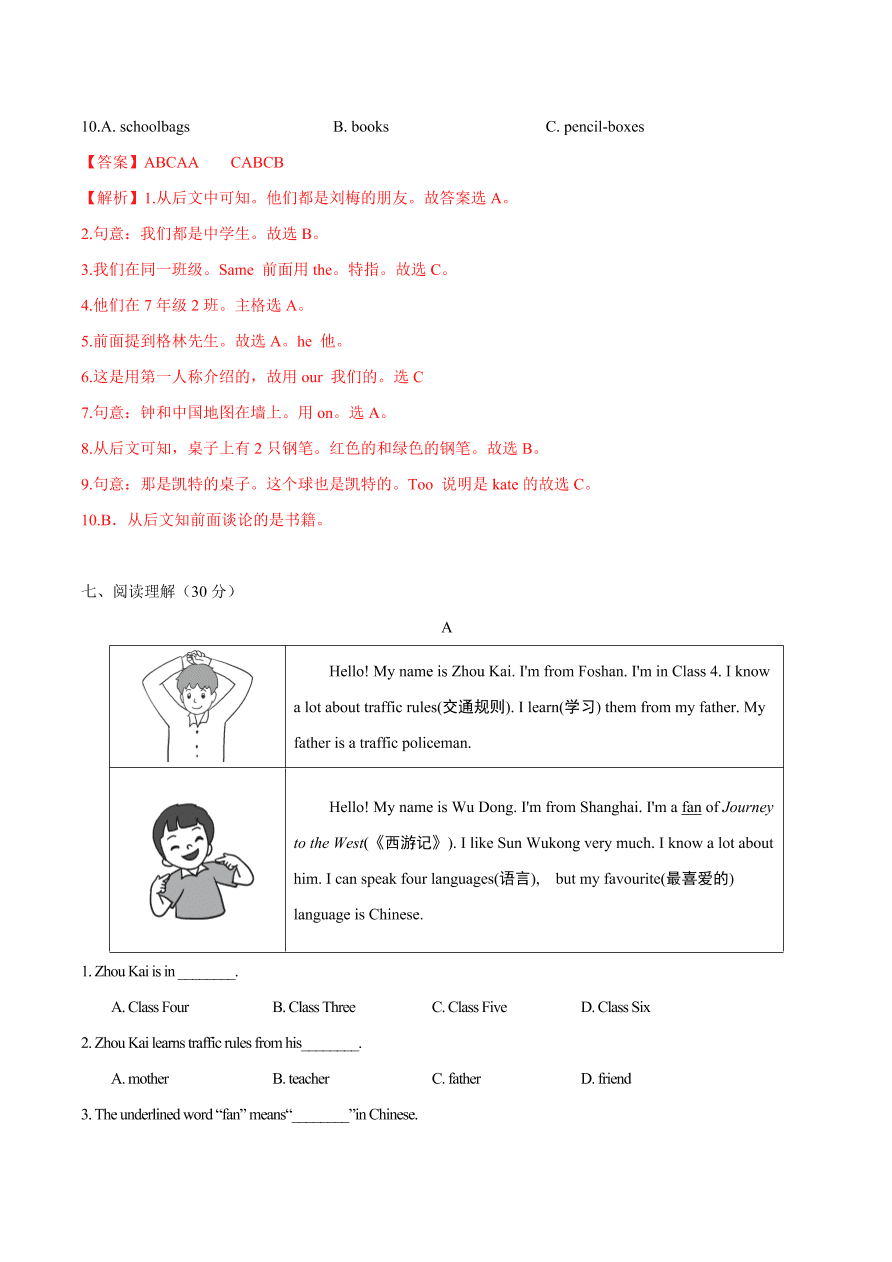 10.A. schoolbags B. books C. pencil-boxes
【答案】ABCAA CABCB
【解析】1.从后文中可知。他们都是刘梅的朋友。故答案选 A。
2.句意：我们都是中学生。故选 B。
3.我们在同一班级。Same 前面用 the。特指。故选 C。
4.他们在 7 年级 2 班。主格选 A。
5.前面提到格林先生。故选 A。he 他。
6.这是用第一人称介绍的，故用 our 我们的。选 C
7.句意：钟和中国地图在墙上。用 on。选 A。
8.从后文可知，桌子上有 2 只钢笔。红色的和绿色的钢笔。故选 B。
9.句意：那是凯特的桌子。这个球也是凯特的。Too 说明是 kate 的故选 C。
10.B．从后文知前面谈论的是书籍。
七、阅读理解（30 分）
A
Hello! My name is Zhou Kai. I'm from Foshan. I'm in Class 4. I know
a lot about traffic rules(交通规则). I learn(学习) them from my father. My
father is a traffic policeman.
Hello! My name is Wu Dong. I'm from Shanghai. I'm a fan of Journey
to the West(《西游记》). I like Sun Wukong very much. I know a lot about
him. I can speak four languages(语言), but my favourite(最喜爱的)
language is Chinese.
1. Zhou Kai is in ________.
A. Class Four B. Class Three C. Class Five D. Class Six
2. Zhou Kai learns traffic rules from his________.
A. mother B. teacher C. father D. friend
3. The underlined word “fan” means“________”in Chinese.